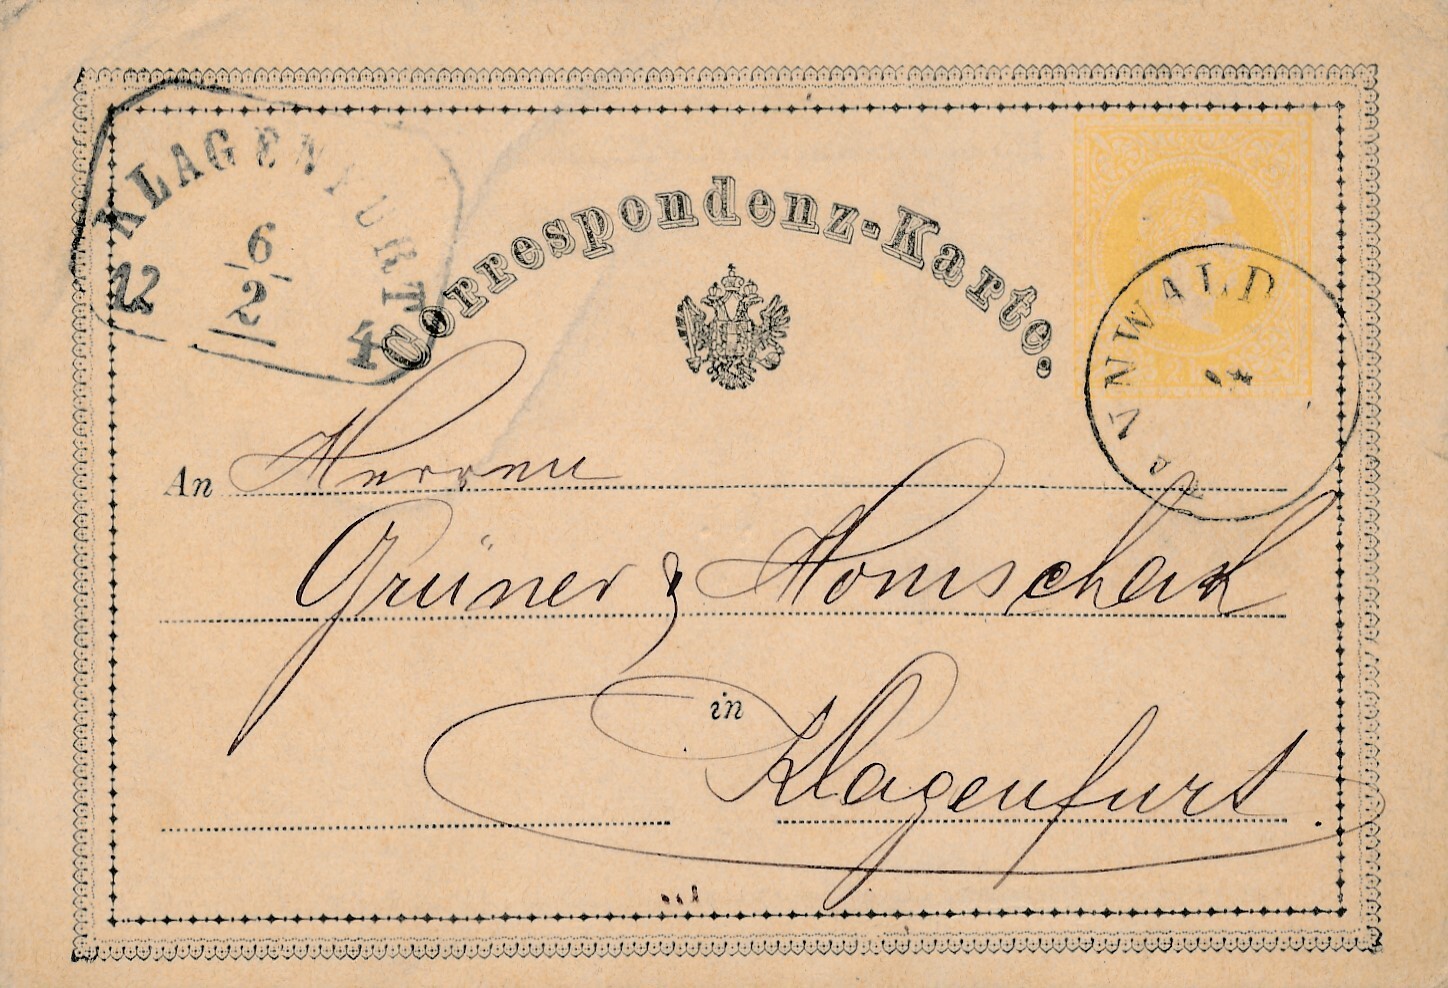 KLAGENFURT
12 6/2 4
Correspondenz-Karte.
NWALD
An Herren
Grüner &
in
Klagenfurt.